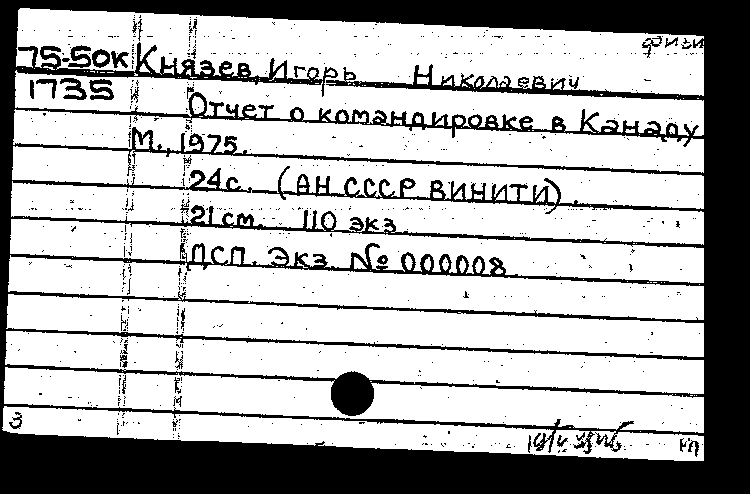 физи
75-50к Князев, Игорь Николаевич
1735
Отчет о командировке в Канаду
М., 1975.
24с. (АН СССР ВИНИТИ).
21 см. 110 экз
ДСП. Экз. № 000008
3 m